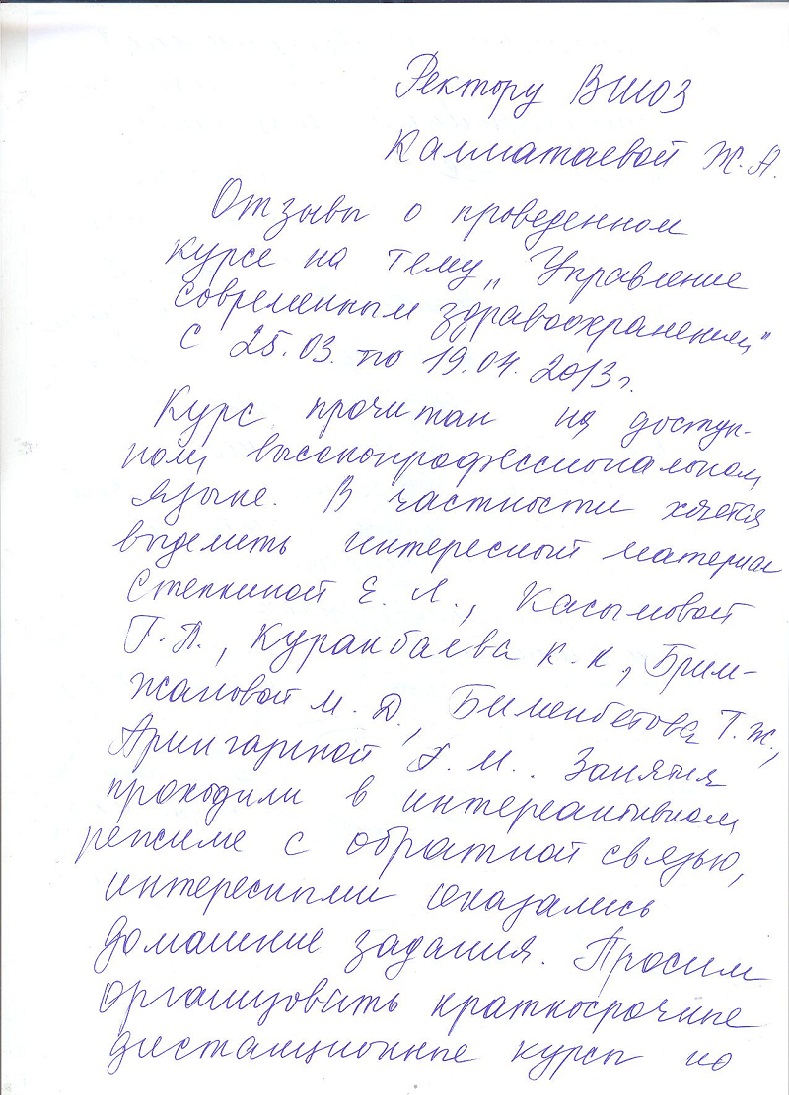 Ректору ВШОЗ
Калматаевой Ж. А.
Отзывы о проведенном
курсе на тему „Управление
современным здравоохранением"
с 25.03. по 19.04. 2013 г.
Курс прочитан на доступ-
ном, высокопрофессиональном
языке. В частности хочется
выделить интересный материал
Степкиной Е. Л., Касымовой
Г. П., Куракбаева К. К., Брим-
жановой М. Д., Бименбетова Т. Ж.,
Арингазиной А. М.. Занятия
проходили в интереактивном
режиме с обратной связью,
интересными оказались
домашние задания. Просим
организовать краткосрочные
дистанционные курсы по